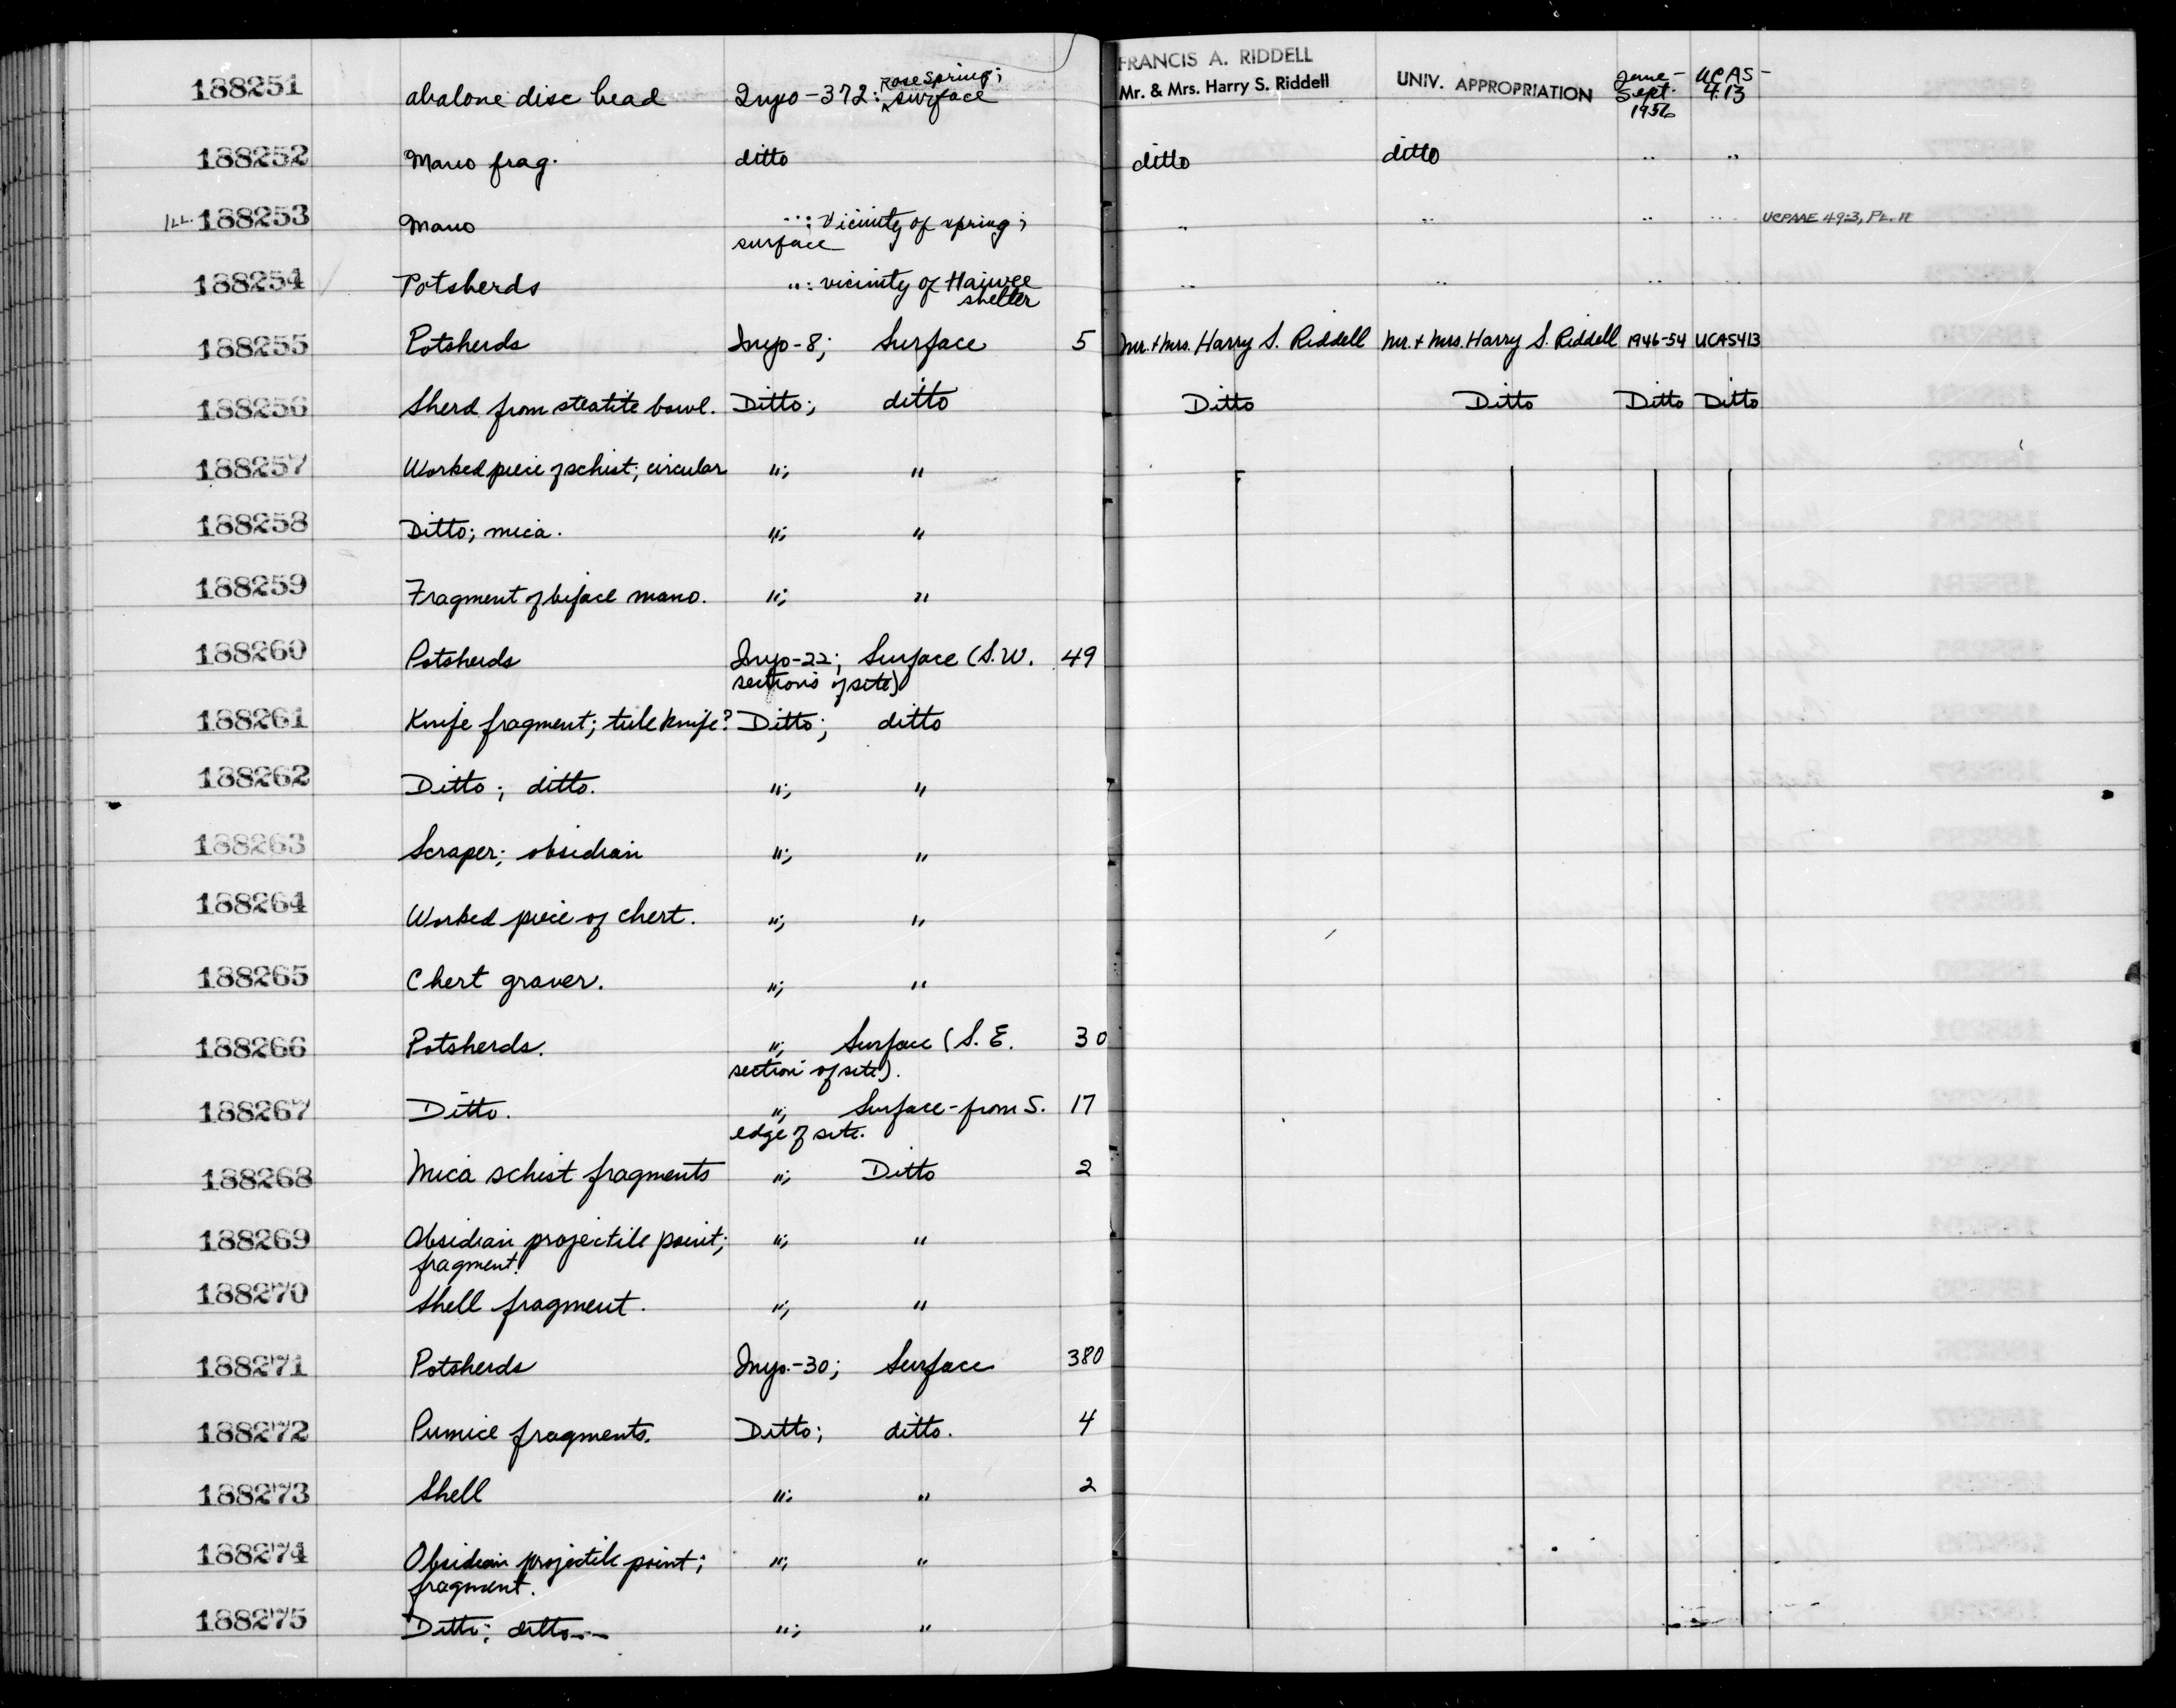 188251 abalone disc bead Inyo-372: Rose spring; surface FRANCIS A. RIDDELL Mr. & Mrs. Harry S. Riddell UNIV. APPROPRIATION June - Sept. 1956 UCAS - 413
188252 Mano frag. ditto ditto ditto " "
ILL. 188253 Mano ": vicinity of spring; surface " " " " UCPAAE 49:3, PL.
188254 Potsherds ": vicinity of Haiwee shelter " " " "
188255 Potsherds Inyo-8; Surface 5 Mr. + Mrs. Harry S. Riddell Mr. + Mrs. Harry S. Riddell 1946-54 UCAS413
188256 Sherd from steatite bowl. Ditto; ditto Ditto Ditto Ditto Ditto
188257 Worked piece of schist; circular "; "
188258 Ditto; mica. "; "
188259 Fragment of biface mano. "; "
188260 Potsherds Inyo-22; Surface (S.W. 49
sections of site)
188261 Knife fragment; tule knife? Ditto; ditto
188262 Ditto; ditto. "; "
188263 Scraper; obsidian "; "
188264 Worked piece of chert. "; "
188265 Chert graver. "; "
188266 Potsherds. "; Surface (S.E. 30
section of site).
188267 Ditto. "; Surface - from S. 17
edge of site.
188268 Mica schist fragments "; Ditto 2
188269 Obsidian projectile point; "; "
fragment.
188270 Shell fragment. "; "
188271 Potsherds Inyo-30; Surface 380
188272 Pumice fragments. Ditto; ditto. 4
188273 Shell "; " 2
188274 Obsidian projectile point; "; "
fragment.
188275 Ditto; ditto-- "; "